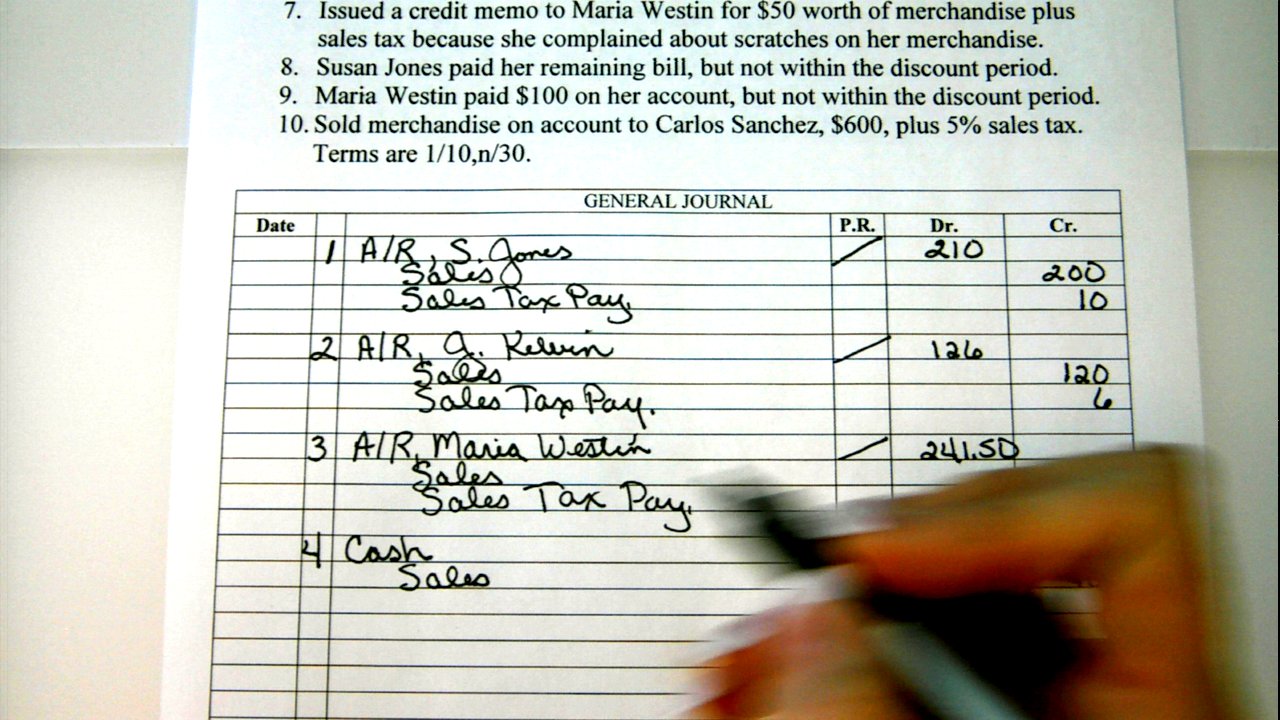 7. Issued a credit memo to Maria Westin for $50 worth of merchandise plus
sales tax because she complained about scratches on her merchandise.
8. Susan Jones paid her remaining bill, but not within the discount period.
9. Maria Westin paid $100 on her account, but not within the discount period.
10. Sold merchandise on account to Carlos Sanchez, $600, plus 5% sales tax.
Terms are 1/10,n/30.
GENERAL JOURNAL
Date P.R. Dr. Cr.
1 A/R, S. Jones 210
Sales 200
Sales Tax Pay. 10
2 A/R, J. Kelvin 126
Sales 120
Sales Tax Pay. 6
3 A/R, Maria Westin 241.50
Sales
Sales Tax Pay.
4 Cash
Sales